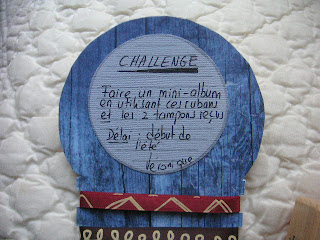 CHALLENGE
Faire un mini-album
en utilisant ces rubans
et les 2 tampons reçus
Délai : début de
l'été
Véronique